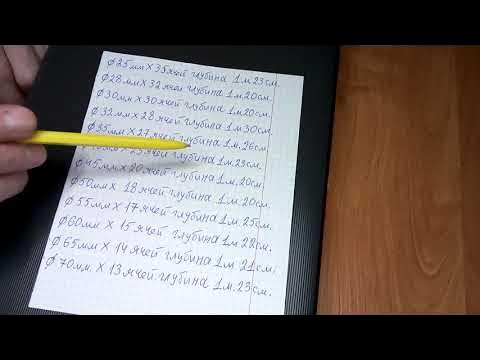 Ø25мм X 35 ячей глубина 1м 23см.
Ø28мм X 32 ячей глубина 1м 20см.
Ø30мм X 30 ячей глубина 1м 20см.
Ø32мм X 28 ячей глубина 1м 30см.
Ø35мм X 27 ячей глубина 1м. 26см.
ячей глубина 1м 25см.
Ø45мм X 20 ячей глубина 1м. 20см.
Ø50мм X 18 ячей глубина 1м. 20см.
Ø55мм X 17 ячей глубина 1м. 25см.
Ø60мм X 15 ячей глубина 1м 22см.
Ø65мм X 14 ячей глубина 1м 21см.
Ø70мм. X 13 ячей. глубина 1м. 23см.